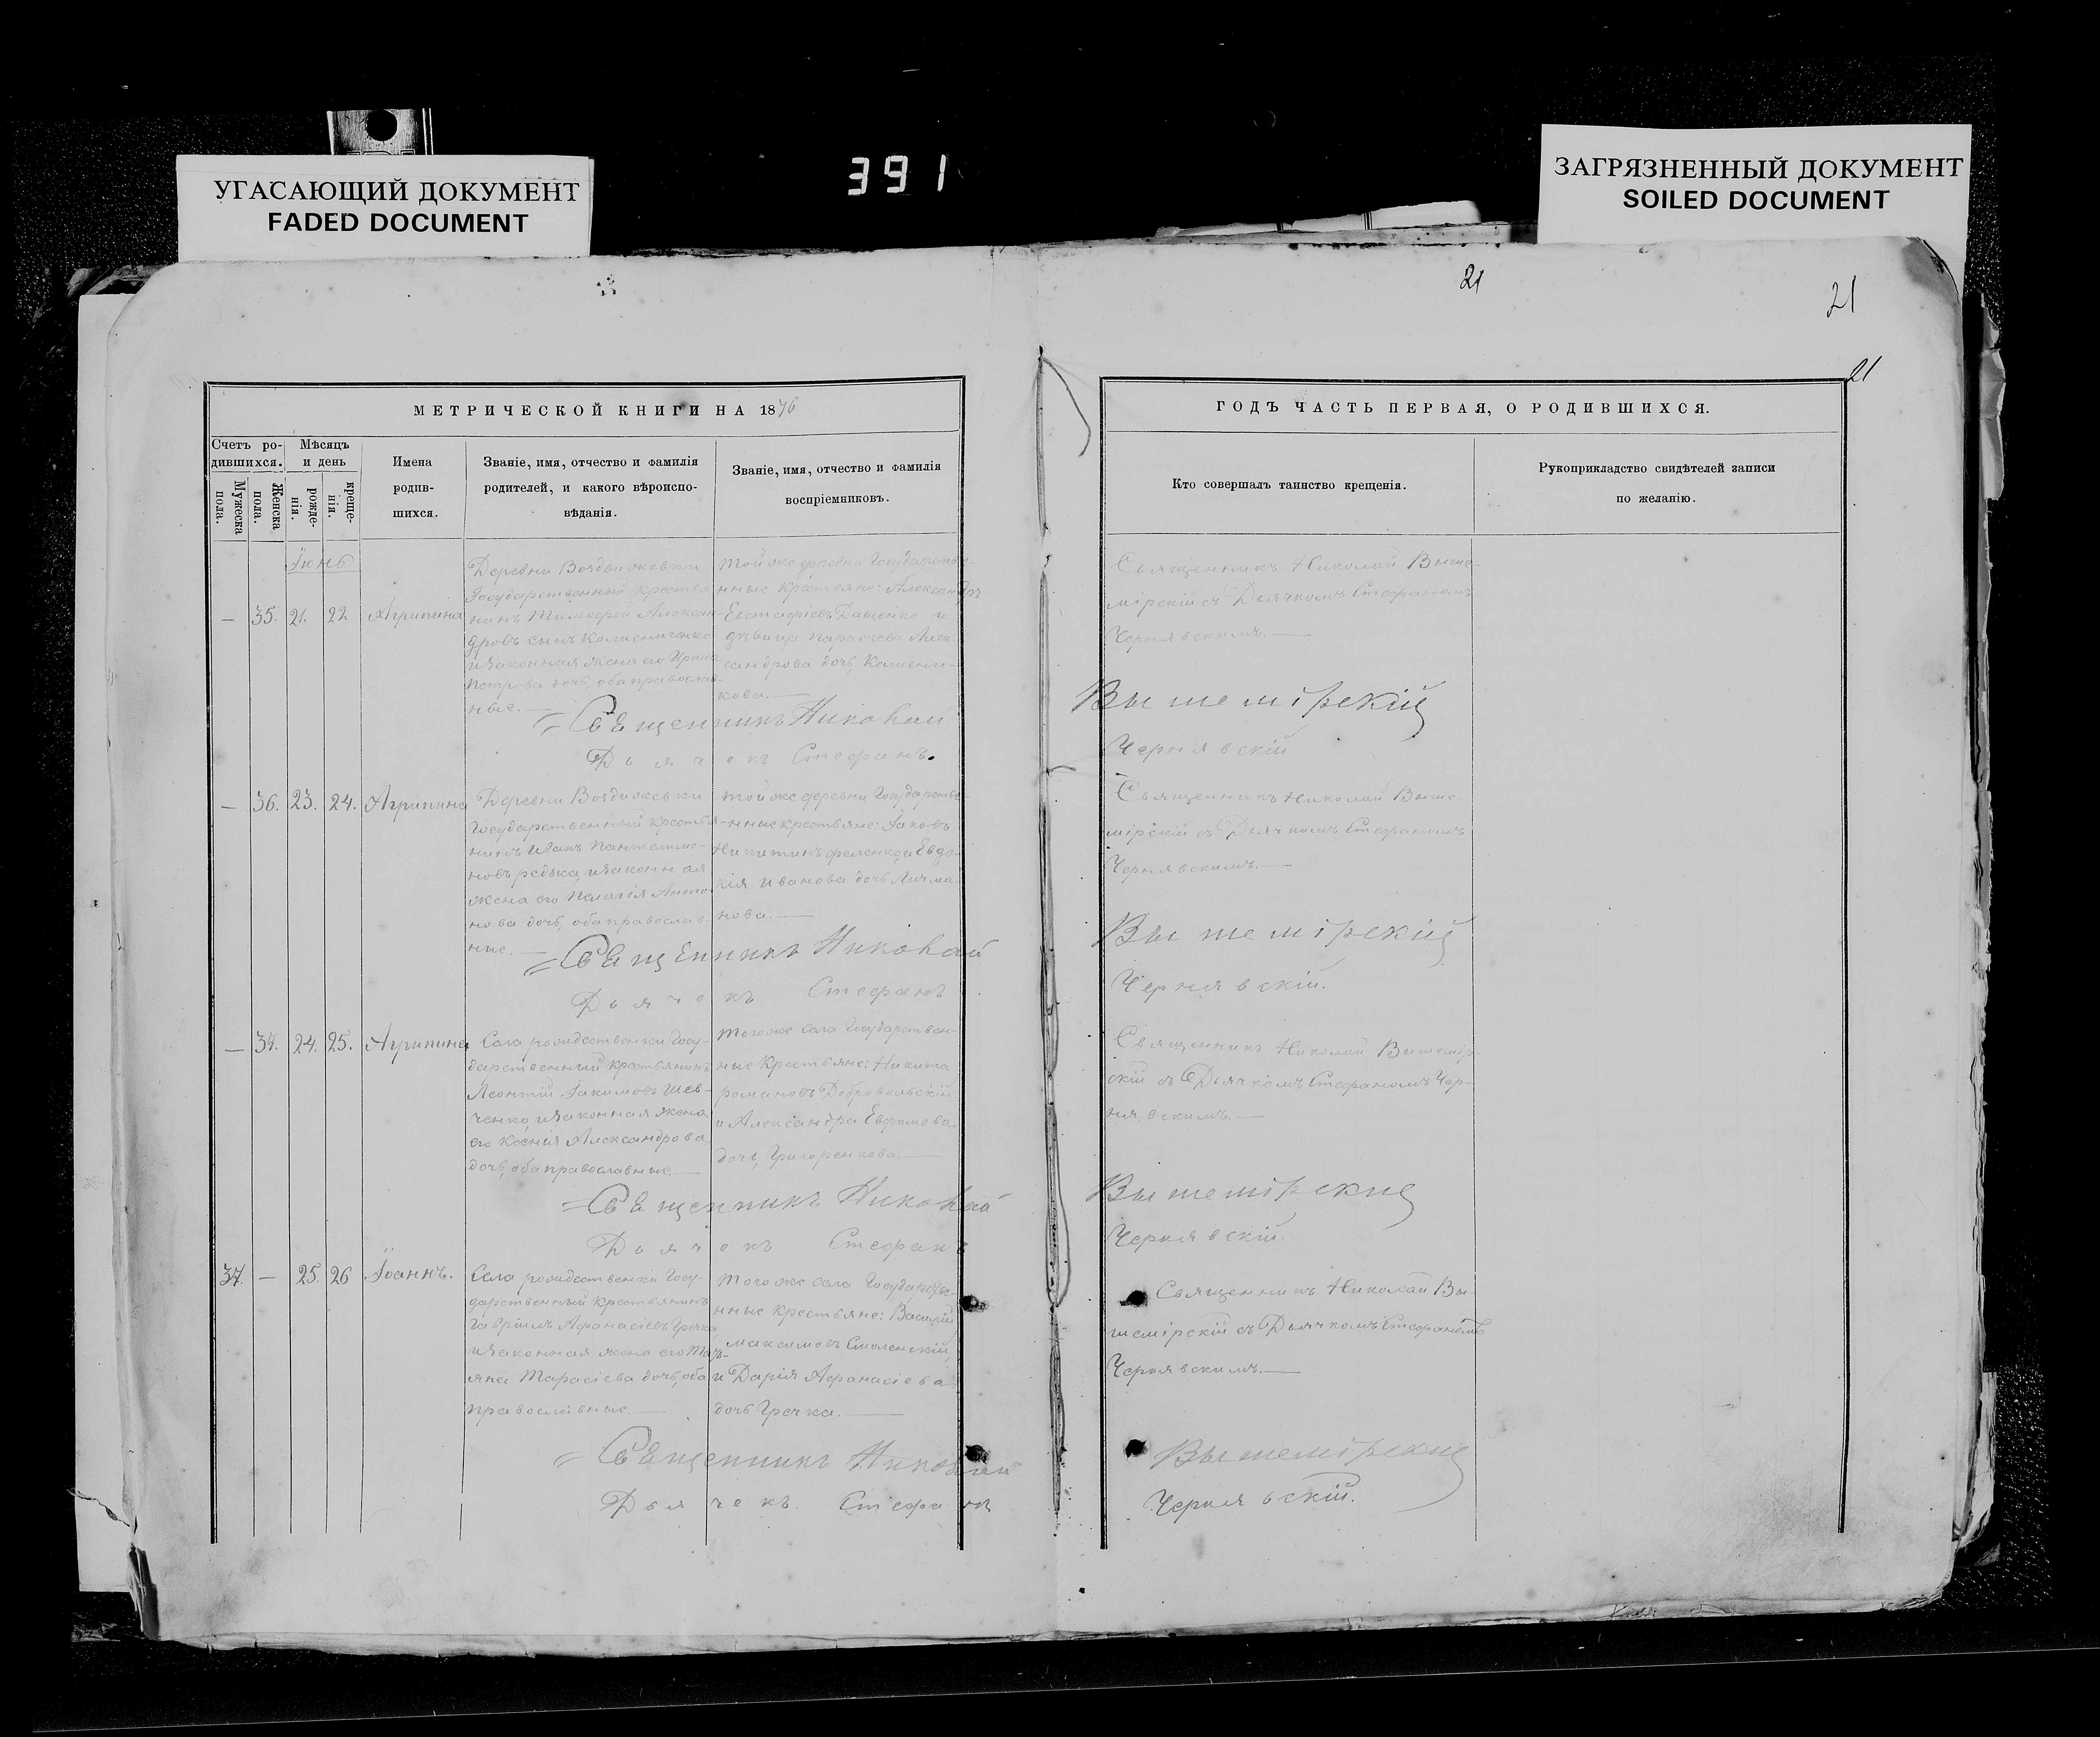 УГАСАЮЩИЙ ДОКУМЕНТ
FADED DOCUMENT
391
ЗАГРЯЗНЕННЫЙ ДОКУМЕНТ
SOILED DOCUMENT
21
21
21
МЕТРИЧЕСКОЙ КНИГИ НА 1876
Счетъ ро-
дившихся.
Мужеска
пола.
Женска
пола.
Мѣсяцъ
и день
рожде-
нія.
креще-
нія.
Имена
родив-
шихся.
Званіе, имя, отчество и фамилія
родителей, и какого вѣроиспо-
вѣданія.
Званіе, имя, отчество и фамилія
воспріемниковъ.
ГОДЪ ЧАСТЬ ПЕРВАЯ, О РОДИВШИХСЯ.
Кто совершалъ таинство крещенія.
Рукоприкладство свидѣтелей записи
по желанію.
Іюнь
— 35. 21. 22 Агрипина
Деревни Воздвижевки
Государственный крестья
нинъ Тимофей Алексан-
дровъ сынъ Колисниченко
и законная жена его Ирина
Петрова дочь, оба православ
ные. —
Тойже деревни Государстве-
нные крестьяне: Александръ
Евстафіевъ Даценко и
дѣвица Параскева Алек-
сандрова дочь
кова. —
Священникъ Николай Выше-
мірскій съ Дьячкомъ Стефаномъ
Чернявскимъ. —
Священникъ Николай Вышемірскій
Дьячекъ Стефанъ. Чернявскій
— 36. 23. 24. Агрипина
Деревни Воздвижевки
Государственный крестья
нинъ Иванъ Пантелимо-
новъ редька, и законная
жена его Пелагія Анто-
нова дочь, оба православ-
ные. —
Тойже деревни Государстве-
-нные крестьяне: Іаковъ
Никитинъ и Евдо-
кія Иванова дочь Личма-
нова. —
Священникъ Николай Выше
мірскій съ Дьячкомъ Стефаномъ
Чернявскимъ. —
Священникъ Николай Вышемірскій
Дьячекъ Стефанъ Чернявскій.
— 37. 24. 25. Агрипина
Села рождественки Госу-
дарственный крестьянинъ
Леонтій Іакимовъ Шев-
ченко, и законная жена
его Ксенія Александрова
дочь, оба православные. —
Тогоже Села Государствен-
ные Крестьяне: Никита
романовъ Добровольскій
и Александра Евфимова
дочь, Григоренкова. —
Священникъ Николай Вышемір-
скій съ Дьячкомъ Стефаномъ Чер-
нявскимъ. —
Священникъ Николай Вышемірскій
Дьячекъ Стефанъ Чернявскій.
37. — 25. 26 Іоаннъ.
Села рождественки Госу-
дарственный крестьянинъ
Гавріилъ Афанасіевъ Гречка
и законная жена его Тать-
яна Тарасіева дочь, оба
православные. —
Тогоже села Государстве
нные крестьяне: Василій
Максимовъ Смоленскій,
и Дарія Афанасіева
дочь Гречка. —
Священникъ Николай Вы
шемірскій съ Дьячкомъ Стефаномъ
Чернявскимъ. —
Священникъ Николай Вышемірскій
Дьячекъ Стефанъ Чернявскій.